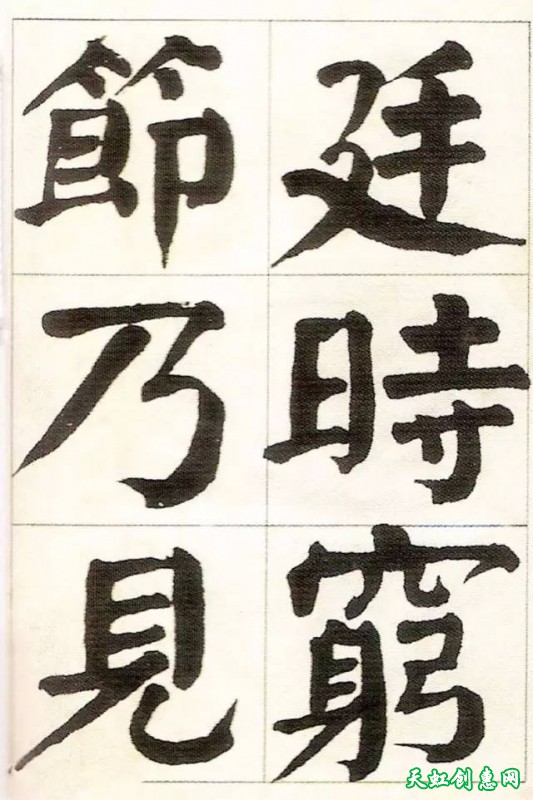 廷時窮
節乃見
天虹创意网